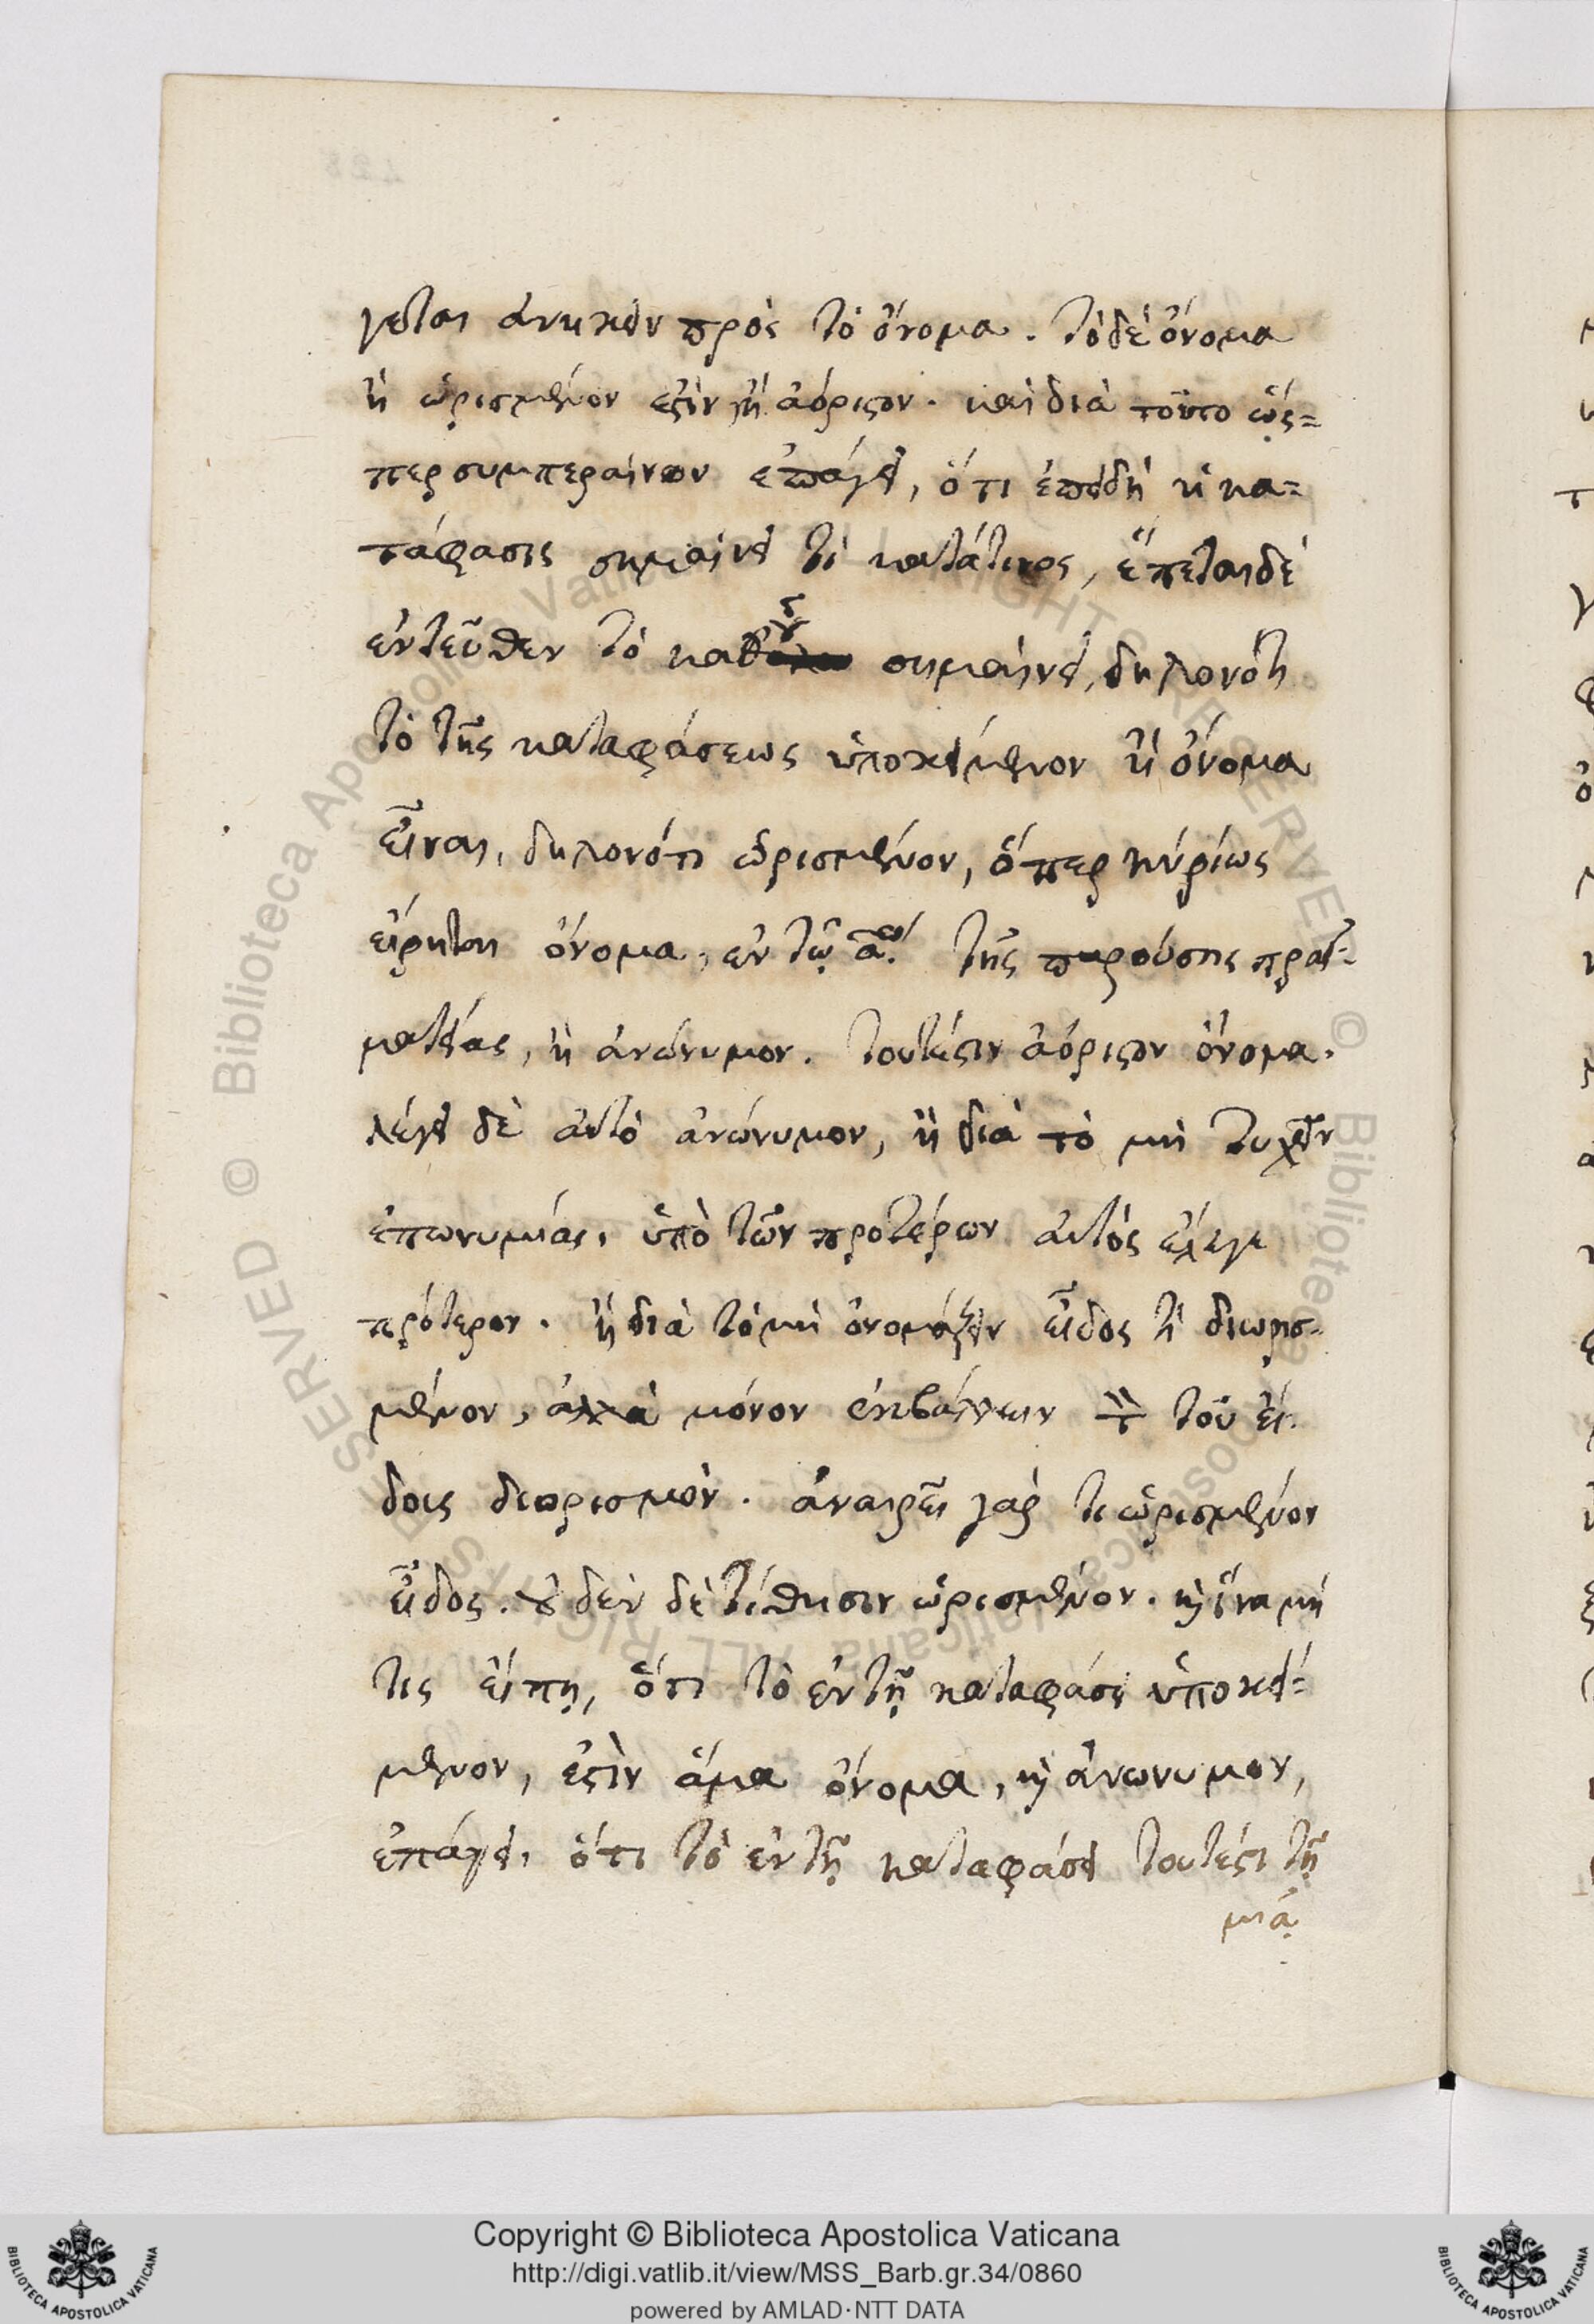 γεται ἀνῆκον πρὸς τὸ ὄνομα. τὸ δὲ ὄνομα
ἢ ὡρισμένον ἐστὶν ἢ ἀόριστον. καὶ διὰ τοῦτο ὥσ=
περ συμπεραίνων ἐπάγει, ὅτι ἐπειδὴ ἡ κα=
τάφασις σημαίνει τὶ κατά τινος, ἕπεται δὲ
ἐντεῦθεν τὸ καθ' οὗ σημαίνει, δηλονότι
τὸ τῆς καταφάσεως ὑποκείμενον ἢ ὄνομα
εἶναι, δηλονότι ὡρισμένον, ὅπερ κυρίως
εἴρηται ὄνομα, ἐν τῷ αῳ. τῆς παρούσης πραγ=
ματείας, ἢ ἀνώνυμον. τουτέστιν ἀόριστον ὄνομα.
λέγει δὲ αὐτὸ ἀνώνυμον, ἢ διὰ τὸ μὴ τυχεῖν
ἐπωνυμίας, ὑπὸ τῶν προτέρων αὐτὸς ἔλεγε
πρότερον. ἢ διὰ τὸ μὴ ὀνομάζειν εἶδος τὶ διωρισ=
μένον, ἀλλὰ μόνον τὸν τοῦ εἴ=
δους διορισμόν. ἀναιρεῖ γάρ τι ὡρισμένον
εἶδος. οὐδὲν δὲ τίθησιν ὡρισμένον. καὶ ἵνα μή
τις εἴπῃ, ὅτι τὸ ἐν τῇ καταφάσει ὑποκεί=
μενον, ἐστὶν ἅμα ὄνομα, καὶ ἀνώνυμον,
ἐπάγει, ὅτι τὸ ἐν τῇ καταφάσει τουτέστι τῇ
μιᾷ
Copyright © Biblioteca Apostolica Vaticana
http://digi.vatlib.it/view/MSS_Barb.gr.34/0860
powered by AMLAD·NTT DATA